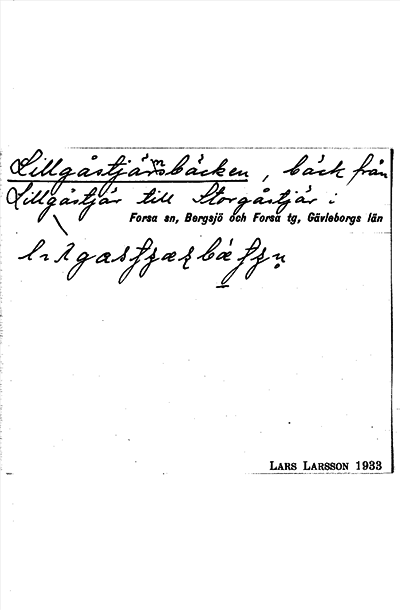 Lillgåstjärnsbäcken, bäck från
Lillgåstjär till Storgåstjär i
Forsa sn, Bergsjö och Forsa tg, Gävleborgs län
LARS LARSSON 1933